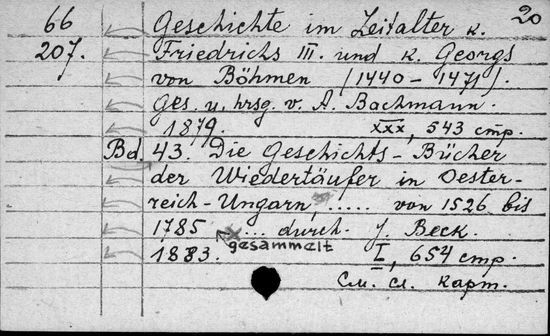 20
66 Geschichte im Zeitalter K.
207. Friedrichs III. und K. Georgs
von Böhmen (1440-1471).
Ges. u. hrsg. v. A. Bachmann.
1879. XXX, 543 стр.
Bd. 43. Die Geschichts-Bücher
der Wiedertäufer in Oester-
reich-Ungarn, ..... von 1526 bis
1785 ... durch. J. Beck.
gesammelt
1883. I, 654 стр.
См. сл. карт.